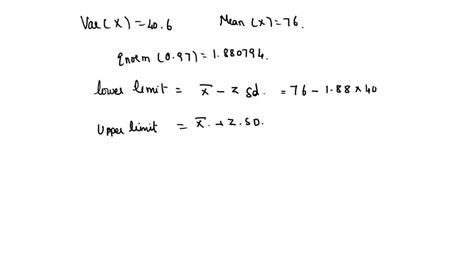 Var(X) = 40.6 Mean (X) = 76.
qnorm (0.97) = 1.880794.
lower limit = x̄ - z sd. = 76 - 1.88 x 40
Upper limit = x̄ + z. SD.